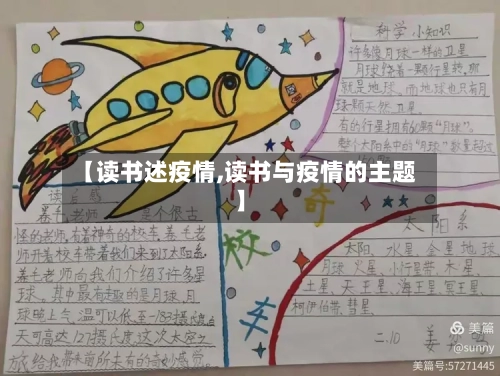 科学小知识
许多像月球一样的卫星
月球绕着一颗行星转，那
就是地球，而地球也只有月
球一颗天然卫星。
有的行星拥有62颗“月球”。
整个太阳系中的“月球”数量超过
【读书述疫情,读书与疫情的主题
】
读后感
卷毛老师 是个很古
怪的老师，有着神奇的校车，卷毛老
师开着校车带着我们来到了太阳系，
卷毛老师向我们介绍了许多星
球。其中最有趣的是月球，月
球晚上气温可以低至-183摄氏度，白
天可高达127摄氏度，这次太空之
旅给我带来前所未有的奇妙感觉
奇
校
车
太阳系
太阳、水星、金星、地球、
月球、火星、小行星带、木星、
土星、天王星、海王星、冥王星、
柯伊伯带、彗星
二.10 姜
美篇
@sunny
美篇号:57271445